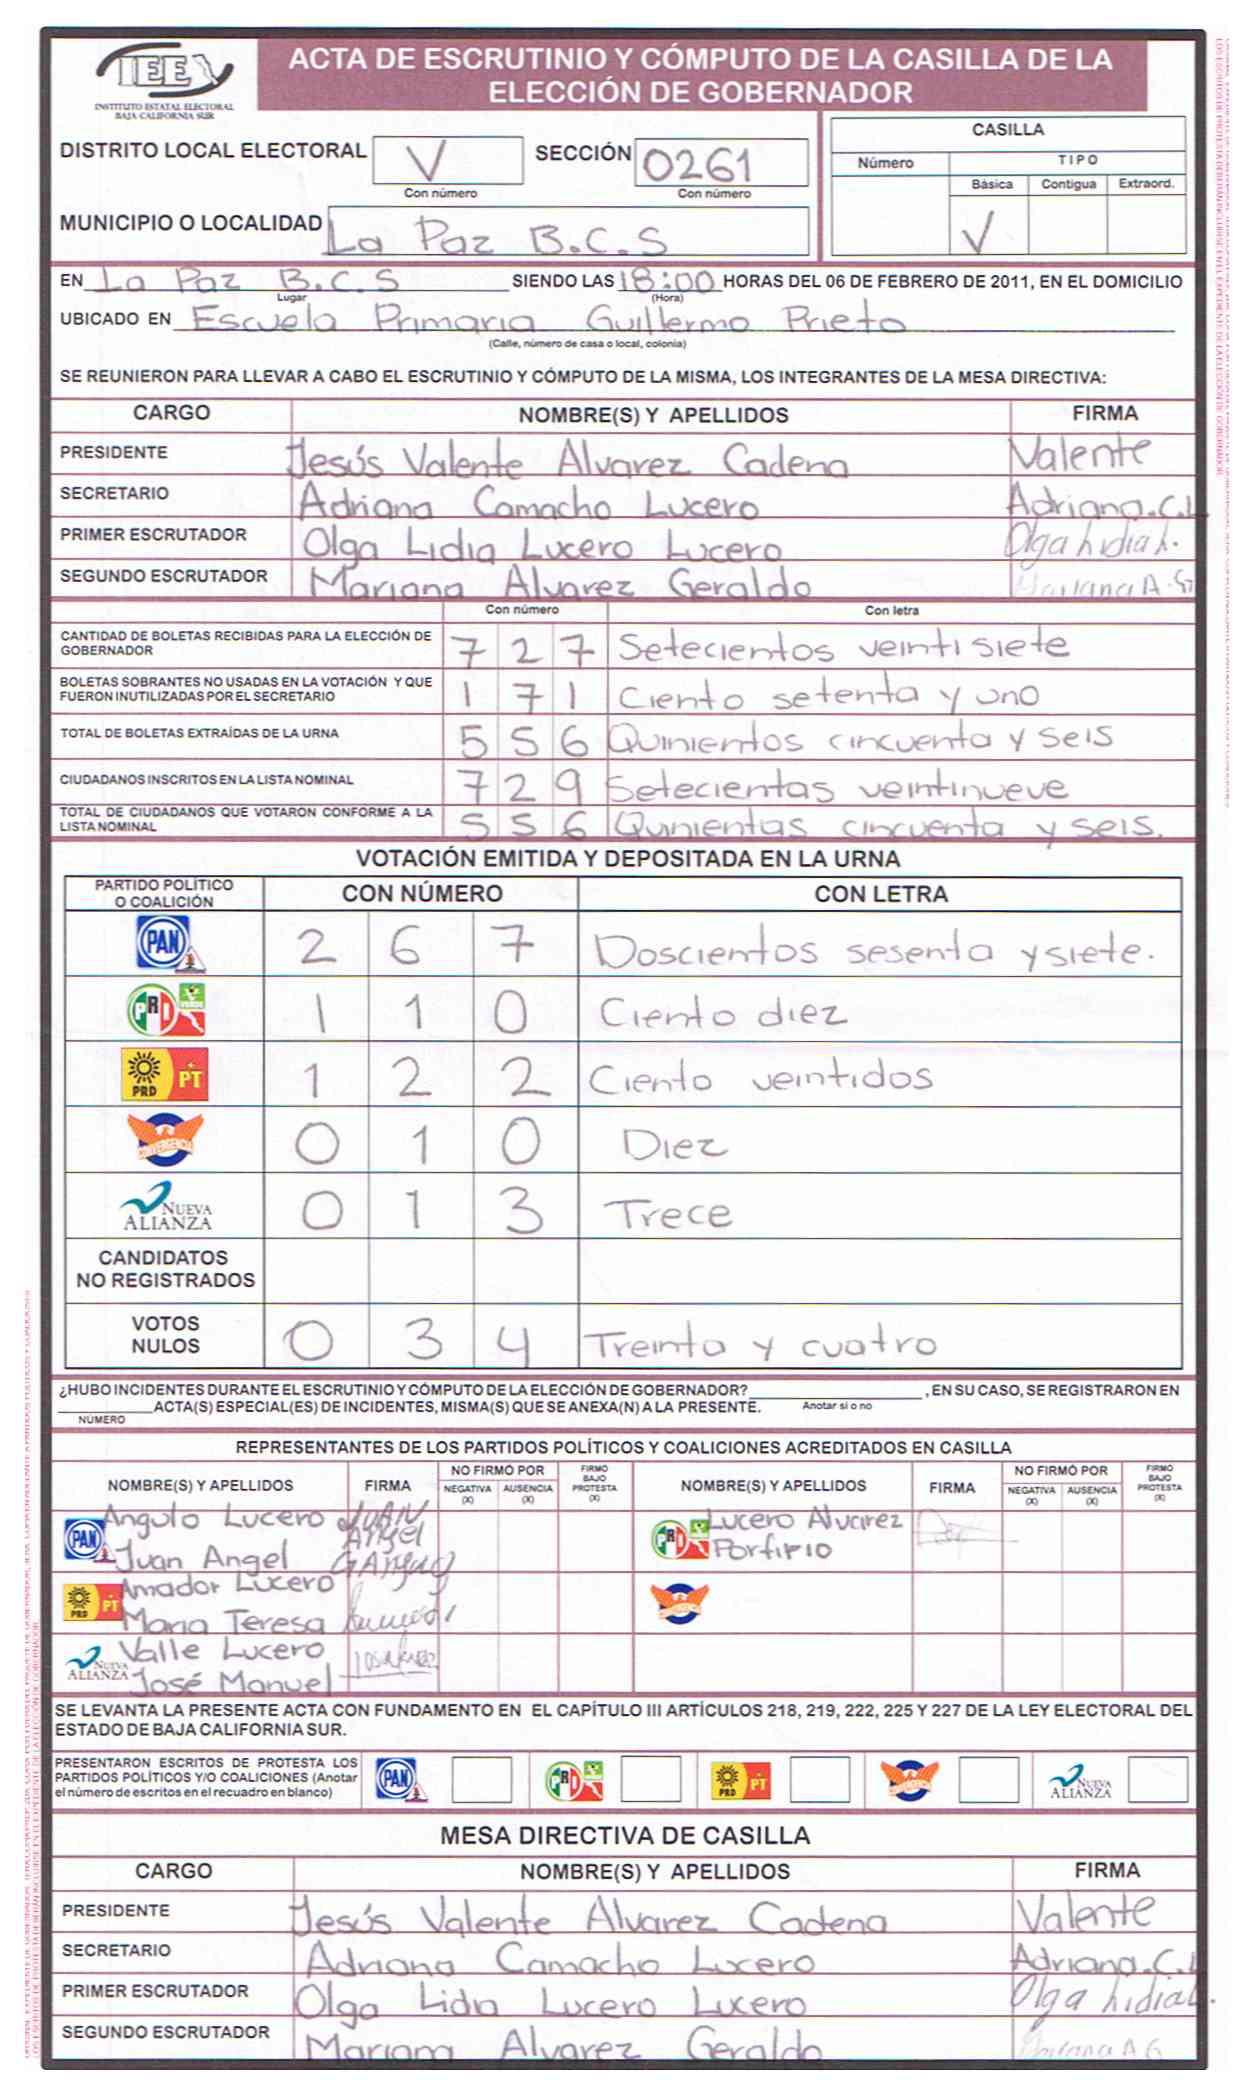 IEE
INSTITUTO ESTATAL ELECTORAL
BAJA CALIFORNIA SUR
ACTA DE ESCRUTINIO Y CÓMPUTO DE LA CASILLA DE LA
ELECCIÓN DE GOBERNADOR
DISTRITO LOCAL ELECTORAL V SECCIÓN 0261
Con número Con número
MUNICIPIO O LOCALIDAD La Paz B.C.S
CASILLA
Número TIPO
Básica Contigua Extraord.
√
EN La Paz B.C.S SIENDO LAS 18:00 HORAS DEL 06 DE FEBRERO DE 2011, EN EL DOMICILIO
Lugar (Hora)
UBICADO EN Escuela Primaria Guillermo Prieto
(Calle, número de casa o local, colonia)
SE REUNIERON PARA LLEVAR A CABO EL ESCRUTINIO Y CÓMPUTO DE LA MISMA, LOS INTEGRANTES DE LA MESA DIRECTIVA:
CARGO NOMBRE(S) Y APELLIDOS FIRMA
PRESIDENTE Jesús Valente Alvarez Cadena Valente
SECRETARIO Adriana Camacho Lucero Adriana.C.L
PRIMER ESCRUTADOR Olga Lidia Lucero Lucero Olga Lidia L.
SEGUNDO ESCRUTADOR Mariana Alvarez Geraldo Mariana A. G
Con número Con letra
CANTIDAD DE BOLETAS RECIBIDAS PARA LA ELECCIÓN DE
GOBERNADOR 7 2 7 Setecientos veinti siete
BOLETAS SOBRANTES NO USADAS EN LA VOTACIÓN Y QUE
FUERON INUTILIZADAS POR EL SECRETARIO 1 7 1 Ciento setenta y uno
TOTAL DE BOLETAS EXTRAÍDAS DE LA URNA 5 5 6 Quinientos cincuenta y seis
CIUDADANOS INSCRITOS EN LA LISTA NOMINAL 7 2 9 Setecientas veintinueve
TOTAL DE CIUDADANOS QUE VOTARON CONFORME A LA
LISTA NOMINAL 5 5 6 Quinientas cincuenta y seis.
VOTACIÓN EMITIDA Y DEPOSITADA EN LA URNA
PARTIDO POLÍTICO
O COALICIÓN CON NÚMERO CON LETRA
PAN 2 6 7 Doscientos sesenta y siete.
PRD VERDE 1 1 0 Ciento diez
PRD PT 1 2 2 Ciento veintidos
CONVERGENCIA 0 1 0 Diez
NUEVA
ALIANZA 0 1 3 Trece
CANDIDATOS
NO REGISTRADOS
VOTOS
NULOS 0 3 4 Treinta y cuatro
¿HUBO INCIDENTES DURANTE EL ESCRUTINIO Y CÓMPUTO DE LA ELECCIÓN DE GOBERNADOR? , EN SU CASO, SE REGISTRARON EN
ACTA(S) ESPECIAL(ES) DE INCIDENTES, MISMA(S) QUE SE ANEXA(N) A LA PRESENTE. Anotar si o no
NÚMERO
REPRESENTANTES DE LOS PARTIDOS POLÍTICOS Y COALICIONES ACREDITADOS EN CASILLA
NOMBRE(S) Y APELLIDOS FIRMA NO FIRMÓ POR NEGATIVA (X) AUSENCIA (X) FIRMÓ BAJO PROTESTA (X) NOMBRE(S) Y APELLIDOS FIRMA NO FIRMÓ POR NEGATIVA (X) AUSENCIA (X) FIRMÓ BAJO PROTESTA (X)
PAN Angulo Lucero JUAN PRD Lucero Alvarez
Juan Angel Angel Porfirio
PRD PT Amador Lucero
Maria Teresa
NUEVA ALIANZA Valle Lucero
José Manuel
SE LEVANTA LA PRESENTE ACTA CON FUNDAMENTO EN EL CAPÍTULO III ARTÍCULOS 218, 219, 222, 225 Y 227 DE LA LEY ELECTORAL DEL
ESTADO DE BAJA CALIFORNIA SUR.
PRESENTARON ESCRITOS DE PROTESTA LOS
PARTIDOS POLÍTICOS Y/O COALICIONES (Anotar
el número de escritos en el recuadro en blanco) PAN PRD PRD PT CONVERGENCIA NUEVA ALIANZA
MESA DIRECTIVA DE CASILLA
CARGO NOMBRE(S) Y APELLIDOS FIRMA
PRESIDENTE Jesús Valente Alvarez Cadena Valente
SECRETARIO Adriana Camacho Lucero Adriana.C.L
PRIMER ESCRUTADOR Olga Lidia Lucero Lucero Olga Lidia L.
SEGUNDO ESCRUTADOR Mariana Alvarez Geraldo Mariana A G